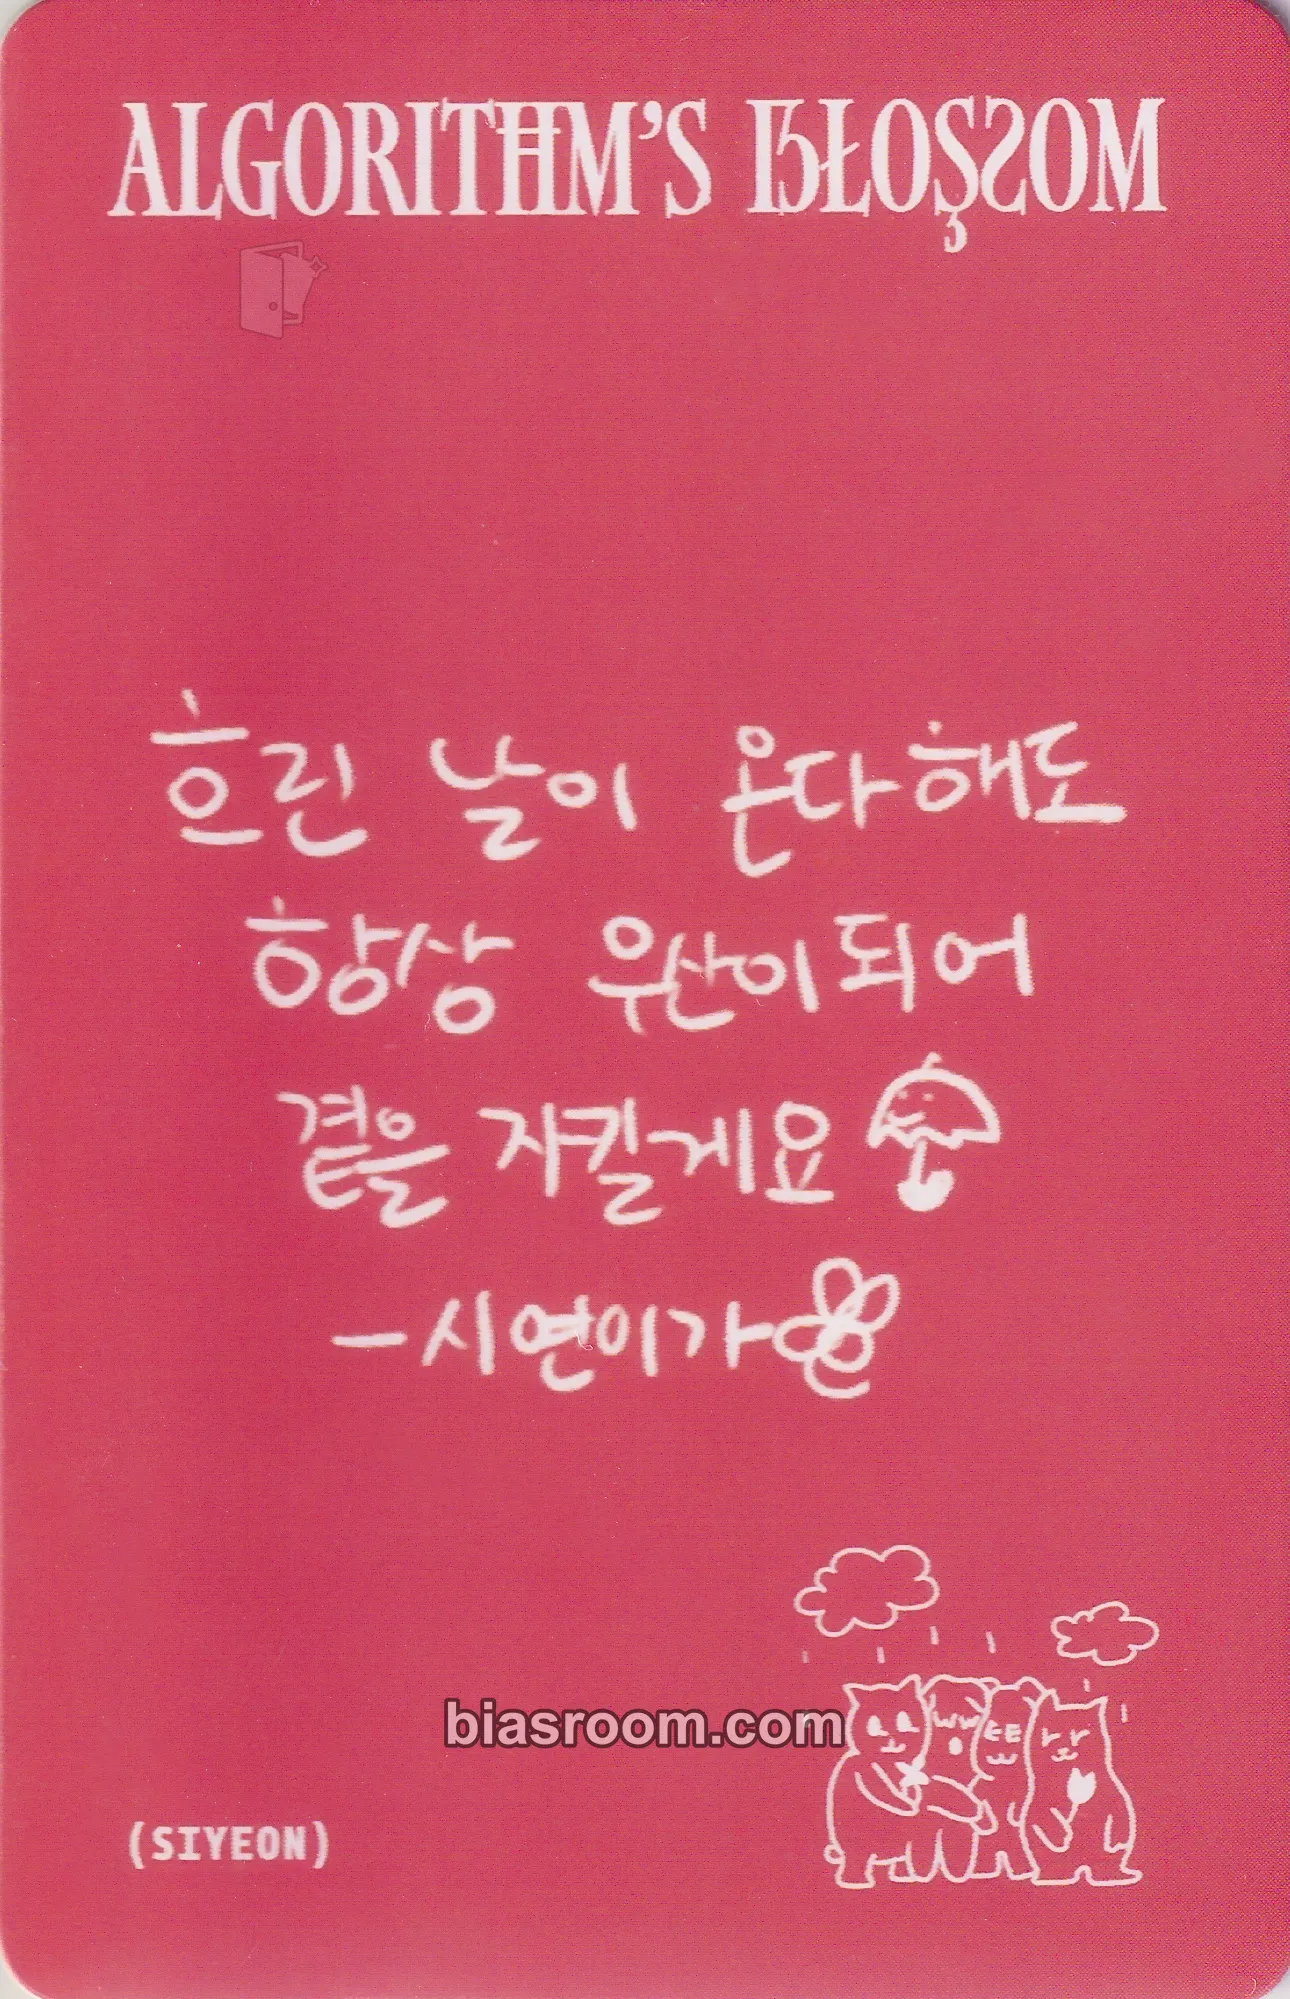 ALGORITHM'S BLOSSOM
흐린 날이 온다해도
항상 우산이 되어
곁을 지킬게요
-시연이가
biasroom.com
(SIYEON)